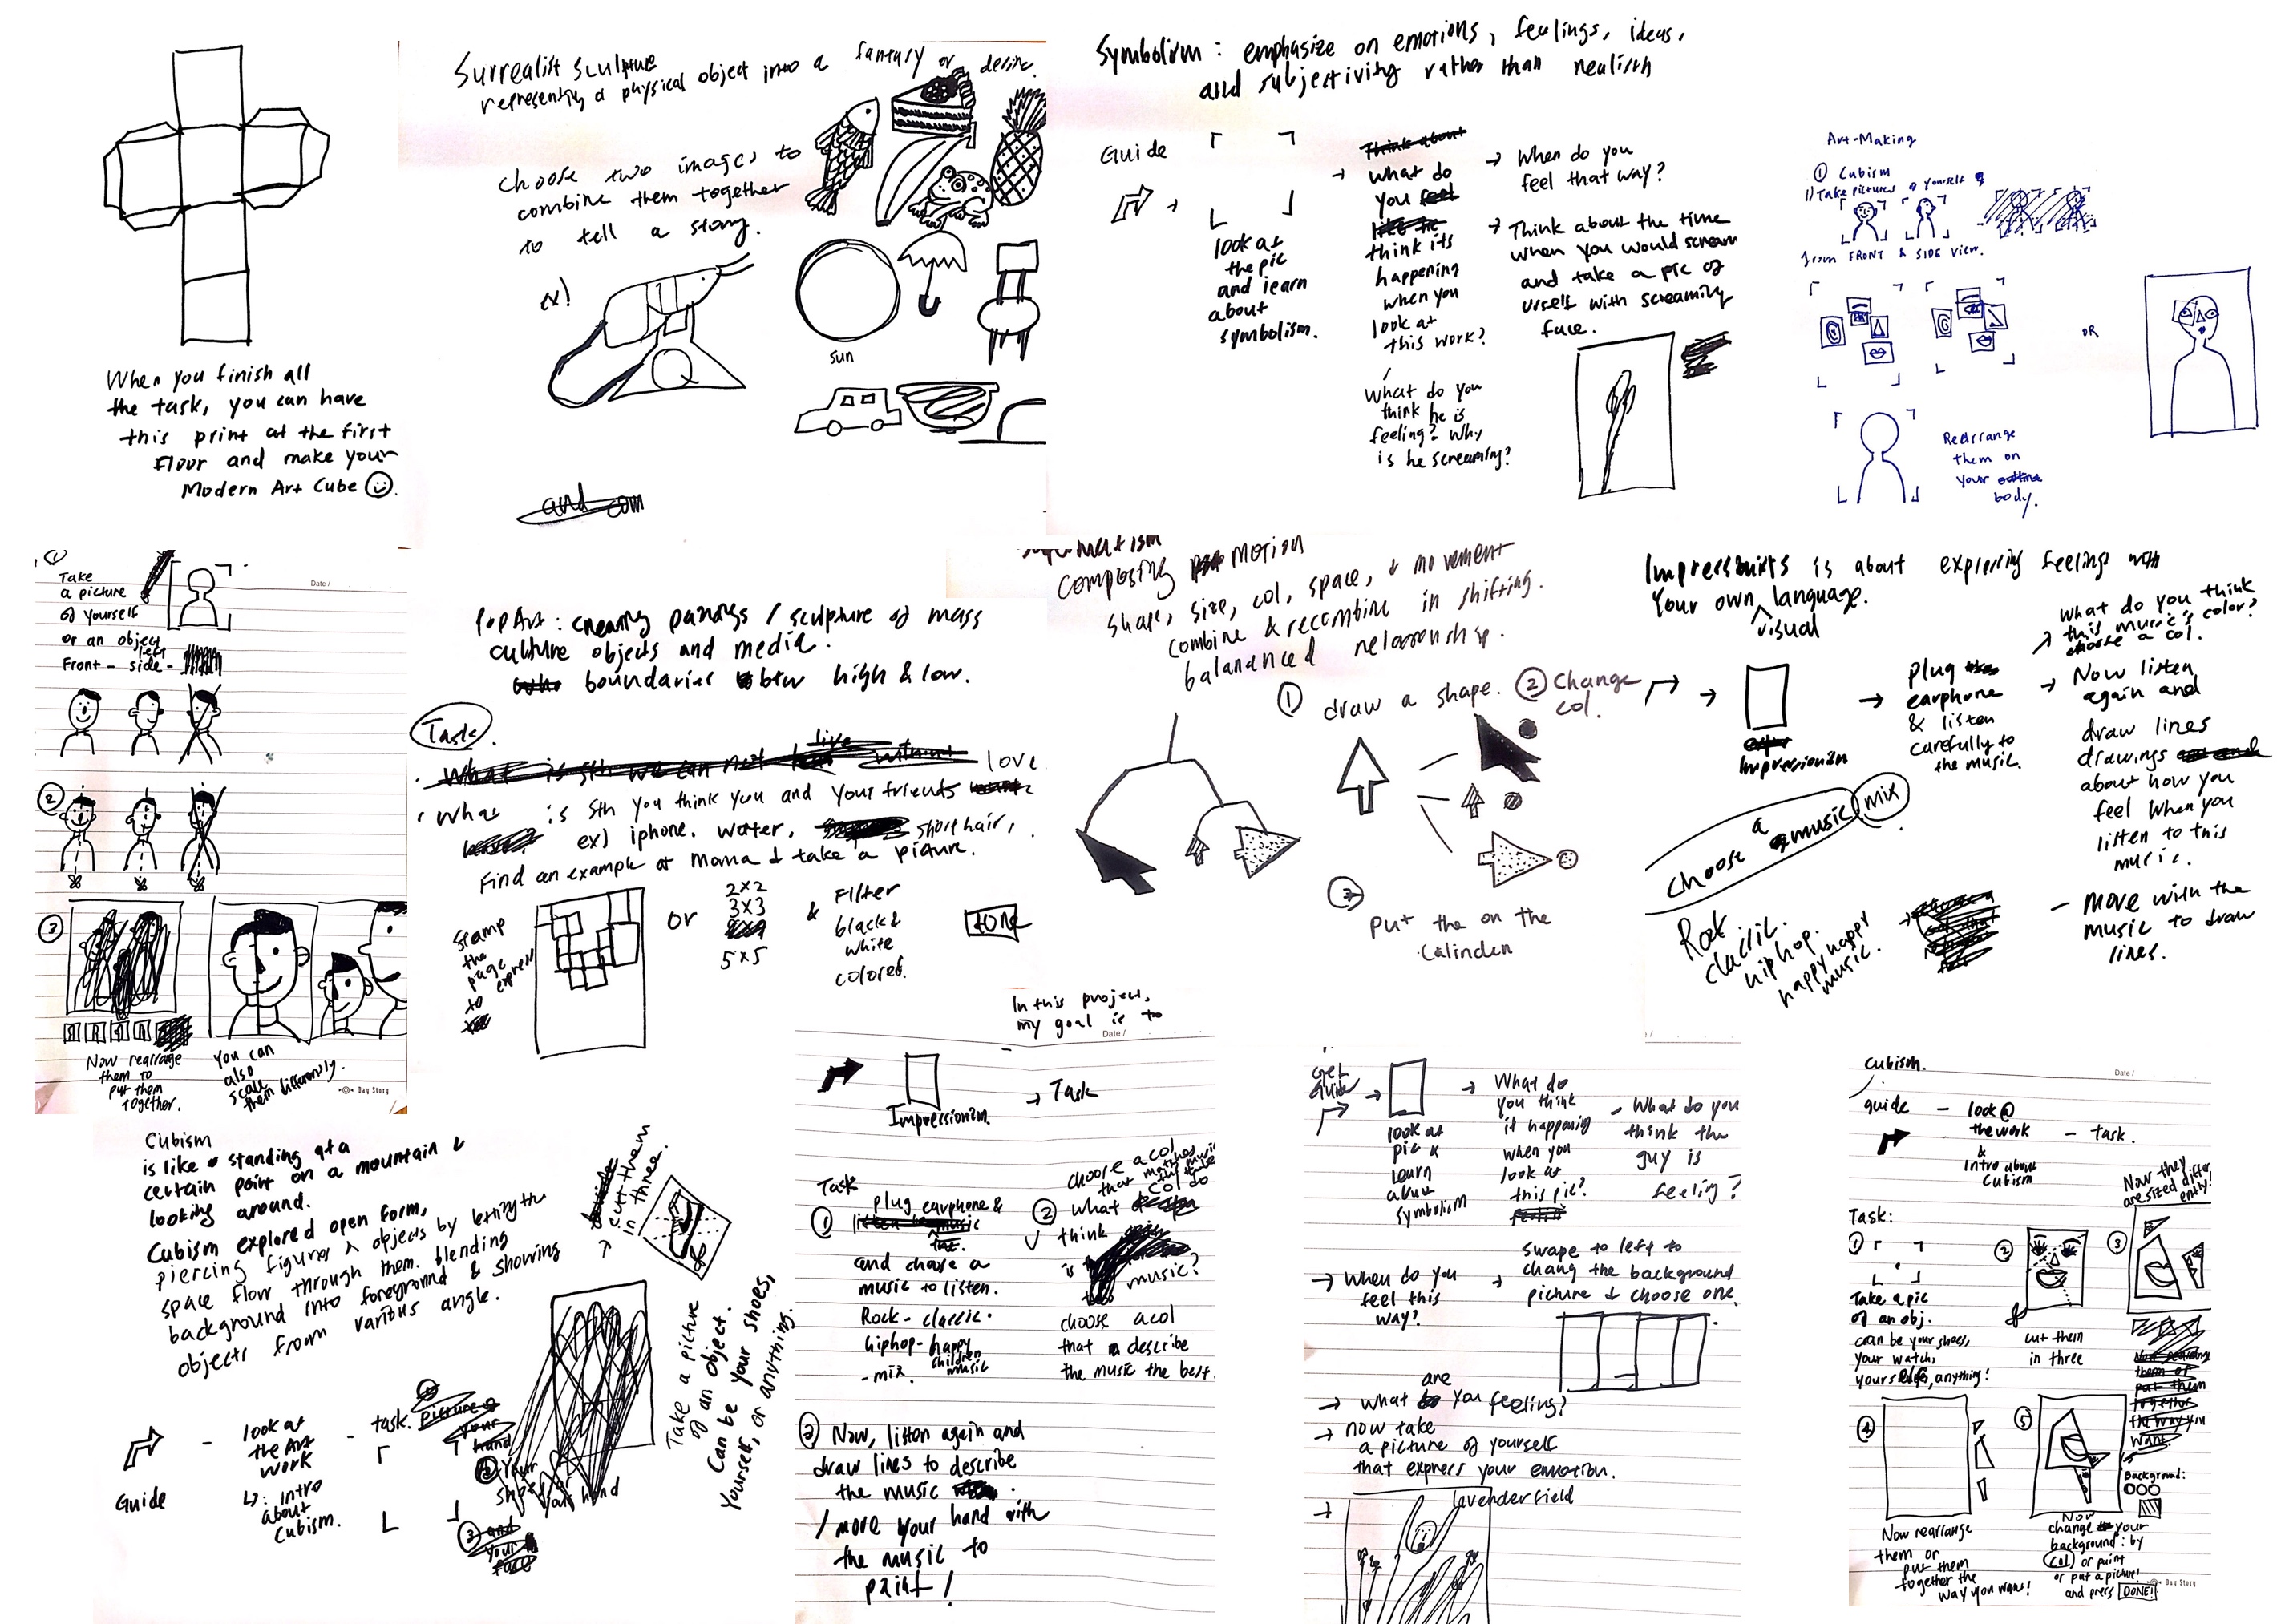 When you finish all
the task, you can have
this print at the first
Floor and make your
Modern Art Cube
Surrealist sculpture
representing a physical object into a fantasy or desire.
choose two images to
combine them together
to tell a story.
ex)
sun
and com
Symbolism: emphasize on emotions, feelings, ideas,
and subjectivity rather than realism
Guide
look at
the pic
and learn
about
symbolism.
Think about
what do
you feel
like he
think its
happening
when you
look at
this work?
What do you
think he is
feeling? Why
is he screaming?
When do you
feel that way?
Think about the time
when you would scream
and take a pic of
urself with screaming
face.
Art-Making
① Cubism
1) Take pictures of yourself
from FRONT & SIDE view.
OR
Rearrange
them on
your outline
body.
Take
a picture
of yourself
or an object
left
Front - side -
Date /
②
③
Now rearrange
them to
put them
together.
You can
also
scale
them differently.
Day Story
Pop Art: creating paintings / sculpture of mass
culture objects and media.
boundaries btw high & low.
Task.
What is sth we can not live without
love
What is sth you think you and your friends
ex) iphone. water, short hair,
Find an example at Moma & take a picture.
stamp
the
page
to express
or
2x2
3x3
5x5
&
Filter
black &
white
colored.
DONE
Suprematism
composing motion
shape, size, col, space, & movement
combine & recombine in shifting.
balananced relationship.
① draw a shape.
② Change
col.
③
Put the on the
Calinden
Impressionists is about expressing feelings with
Your own visual language.
Impressionizm
plug
earphone
& listen
carefully to
the music.
What do you think
this music's color?
choose a col.
Now listen
again and
draw lines
drawings
about how you
feel when you
listen to this
music.
- move with the
music to draw
lines.
choose a music
mix
Rock
classic.
hiphop.
happy happy
music.
Cubism
is like standing at a
certain point on a mountain &
looking around.
Cubism explored open form,
piercing figures & objects by letting the
space flow through them. blending
background into foreground & showing
objects from various angle.
cut them
in three.
Take a picture
of an object.
Can be your shoes,
Yourself, or anything.
Guide
- look at
the Art
work
↳: intro
about
Cubism.
- task.
picture of
your
hand
② Your
shoes or
your hand
③ and
your
In this project,
my goal is to
Date /
Impressionizm.
Task
Task
① plug earphone &
listen to music
and choose a
music to listen.
Rock - classic.
hiphop - happy
children
music
- mix.
choose a col
that matches
the music
② what col do
think
is
music?
choose a col
that describe
the music the best.
③ Now, listen again and
draw lines to describe
the music
/ move your hand with
the music to
paint!
Get
Guide
look at
pic &
Learn
about
symbolism
What do
you think
it happening
when you
look at
this pic?
- What do you
think the
guy is
feeling?
When do you
feel this
way?
swape to left to
chang the background
picture & choose one.
are
what you feeling?
now take
a picture of yourself
that express your emotion.
lavender field
cubism.
Date /
guide
- look @
the work
&
Intro about
Cubism
- task.
Task:
①
Take a pic
of an obj.
can be your shoes,
your watch,
yourself, anything!
②
cut them
in three
Now they
are sized differ
ently!
③
Now rearrange
them or
put them
together
the way you
want.
④
Now rearrange
them or
put them
together the
way you want!
⑤
Background:
Now
change your
background: by
col or paint
or put a picture!
and press DONE!
Day Story